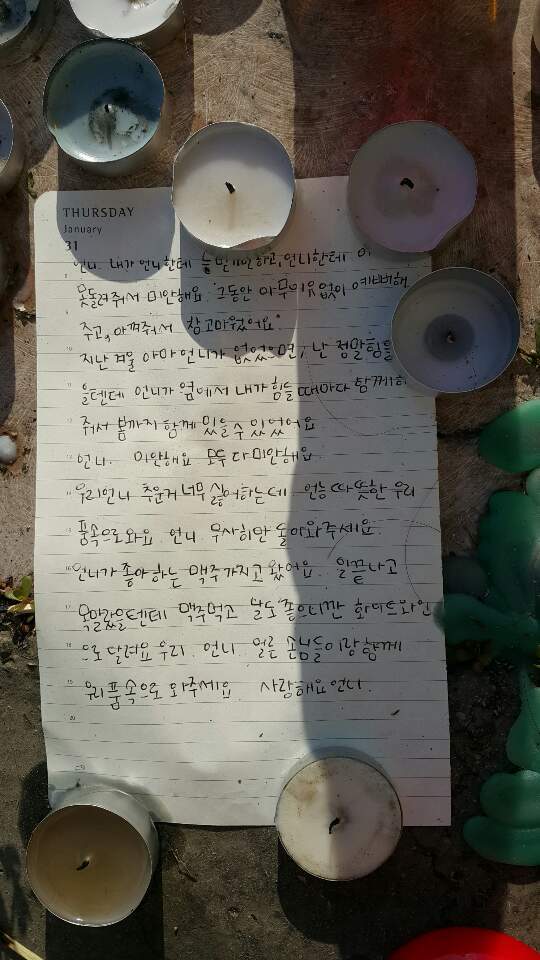 THURSDAY
January
31
언니. 내가 언니한테 늘 미안하고, 언니한테
못돌려줘서 미안해요. 그동안 아무이유없이 예뻐해
주고, 아껴줘서 참고마웠어요.
지난 겨울 아마 언니가 없었으면, 난 정말힘들
을텐데 언니가 옆에서 내가 힘들때마다 함께해
줘서 봄까지 함께 있을수 있었어요
언니. 미안해요 모두 다 미안해요.
우리언니 추운거 너무 싫어하는데 언능 따뜻한 우리
품속으로 와요. 언니 무사히만 돌아와주세요.
언니가 좋아하는 맥주 가지고 왔어요. 일끝나고
목말랐을텐데 맥주먹고 날도 좋으니깐 화이트와인
으로 달려요 우리. 언니. 얼른 손님들이랑 함께
우리 품속으로 와주세요. 사랑해요 언니.